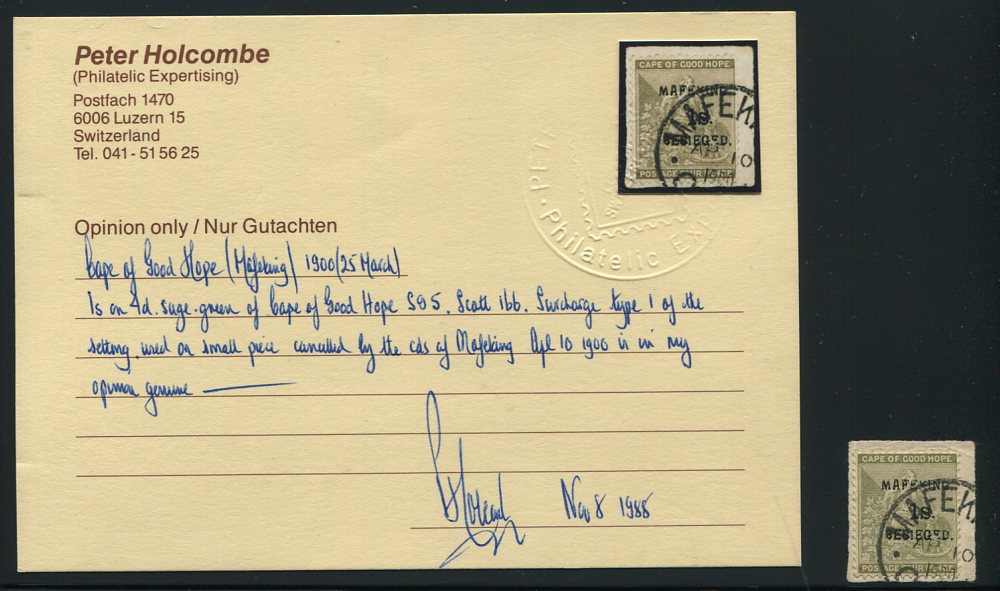 Peter Holcombe
(Philatelic Expertising)
Postfach 1470
6006 Luzern 15
Switzerland
Tel. 041 - 51 56 25
CAPE OF GOOD HOPE
MAFEKING,
1s.
BESIEGED.
POSTAGE FOUR PENCE
MAFEK
AP
10
Philatelic EXP
Opinion only / Nur Gutachten
Cape of Good Hope (Mafeking) 1900 (25 March)
1s on 4d. sage-green of Cape of Good Hope SG5, Scott 166. Surcharge type 1 of the
setting, used on small piece cancelled by the cds of Mafeking Apl 10 1900 is in my
opinion genuine
Nov 8 1988
CAPE OF GOOD HOPE
MAFEKING,
1s.
BESIEGED.
POSTAGE FOUR PENCE
MAFEK
AP
10